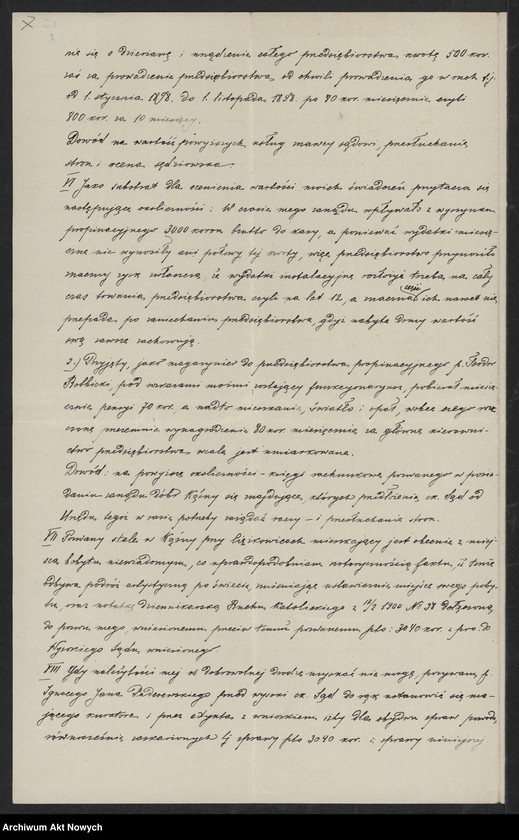 nie się o dzierżawę i urządzenie całego przedsiębiorstwa kwotę 500 kor.
zaś za prowadzenie przedsiębiorstwa od chwili prowadzenia go w ruch t.j.
od 1. stycznia 1898. do 1. listopada 1898. po 80 kor. miesięcznie czyli
800 kor. za 10 miesięcy.
Dowód na wartość powyższych usług znawcy sądowi, przesłuchanie
stron i ocena sędziowska.
VI Jako substrat dla ocenienia wartości moich świadczeń przytacza się
następujące okoliczności: W czasie mego zarządu wpływało z wyszynku
propinacyjnego 3000 koron brutto do kasy, a ponieważ wydatki miesię-
czne nie wynosiły ani połowy tej kwoty, więc przedsiębiorstwo przynosiło
znaczny zysk, że wydatki instalacyjne rozłożyć trzeba na cały
czas trwania przedsiębiorstwa czyli na lat 12, a znaczna część ich nawet nie
przepada po zaniechaniu przedsiębiorstwa, gdyż nabyte rzeczy wartość
swą zawsze zachowują.
2.) Przyjęty, jako magazynier do przedsiębiorstwa propinacyjnego p. Teodor
Robbicki, pod rozkazami moimi zostający funkcyonaryusz, pobierał miesię-
cznie pensyi 70 kor. a nadto mieszkanie, światło i opał, wobec czego rosz-
czone przezemnie wynagrodzenie 80 kor. miesięcznie za główne kierowni-
ctwo przedsiębiorstwa wcale jest umiarkowane.
Dowód: na powyższe okoliczności - księgi rachunkowe pozwanego w posia-
daniu zarządu dóbr Kąśny się znajdujące, których przedłożenie ck. Sąd od
Urzędu tegoż w razie potrzeby zażądać raczy - i przesłuchanie stron.
VII Pozwany stale w Kąśny przy Ciężkowicach mieszkający jest obecnie z miej-
sca pobytu niewiadomym, co uprawdopodobniam notorycznością faktu, iż tenże
odbywa podróż artystyczną po świecie, zmieniając ustawicznie miejsce swego poby-
tu, oraz notatką dziennikarską Ruchu Katolickiego z 11/2 1900 № 38 dołączoną
do pozwu mego, wniesionemu przeciw temuż pozwanemu pto: 3040 kor. z pn. do
Wysokiego Sądu, wniesionego.
VIII Gdy należytości mej w dobrowolnej drodze uzyskać nie mogę, pozywam p.
Ignacego Jana Paderewskiego przed wysoki ck. Sąd do rąk ustanowić się ma-
jącego kuratora i przez edykta z wnioskiem, iżby dla obydwu spraw powodu,
równocześnie zaskarżonych tj sprawy pto 3040 kor. i sprawy niniejszej
Archiwum Akt Nowych